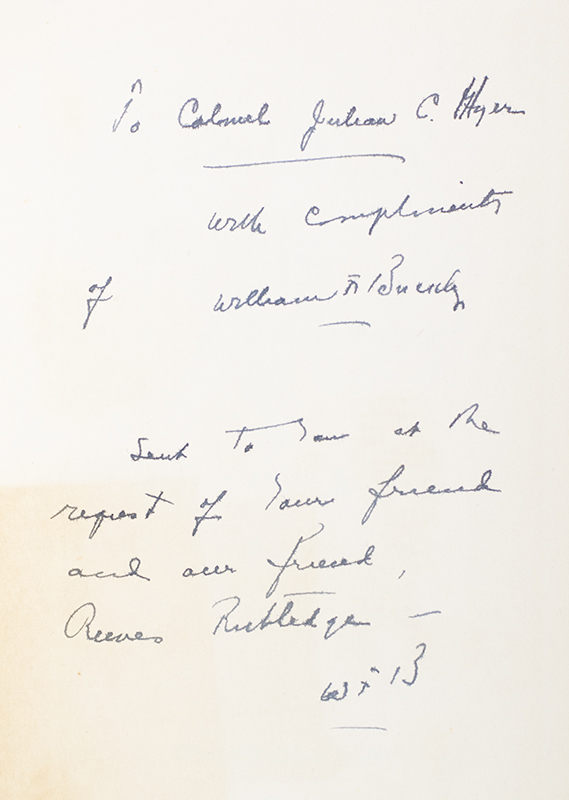 To Colonel Julian C. Hyer
with compliments
of William F Buckley
Sent to you at the
request of your friend
and our friend,
Reeves Rutledge —
WFB